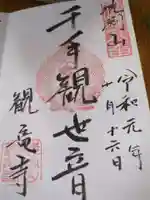 令和元年
十一月十六日
千手観世音
観音寺